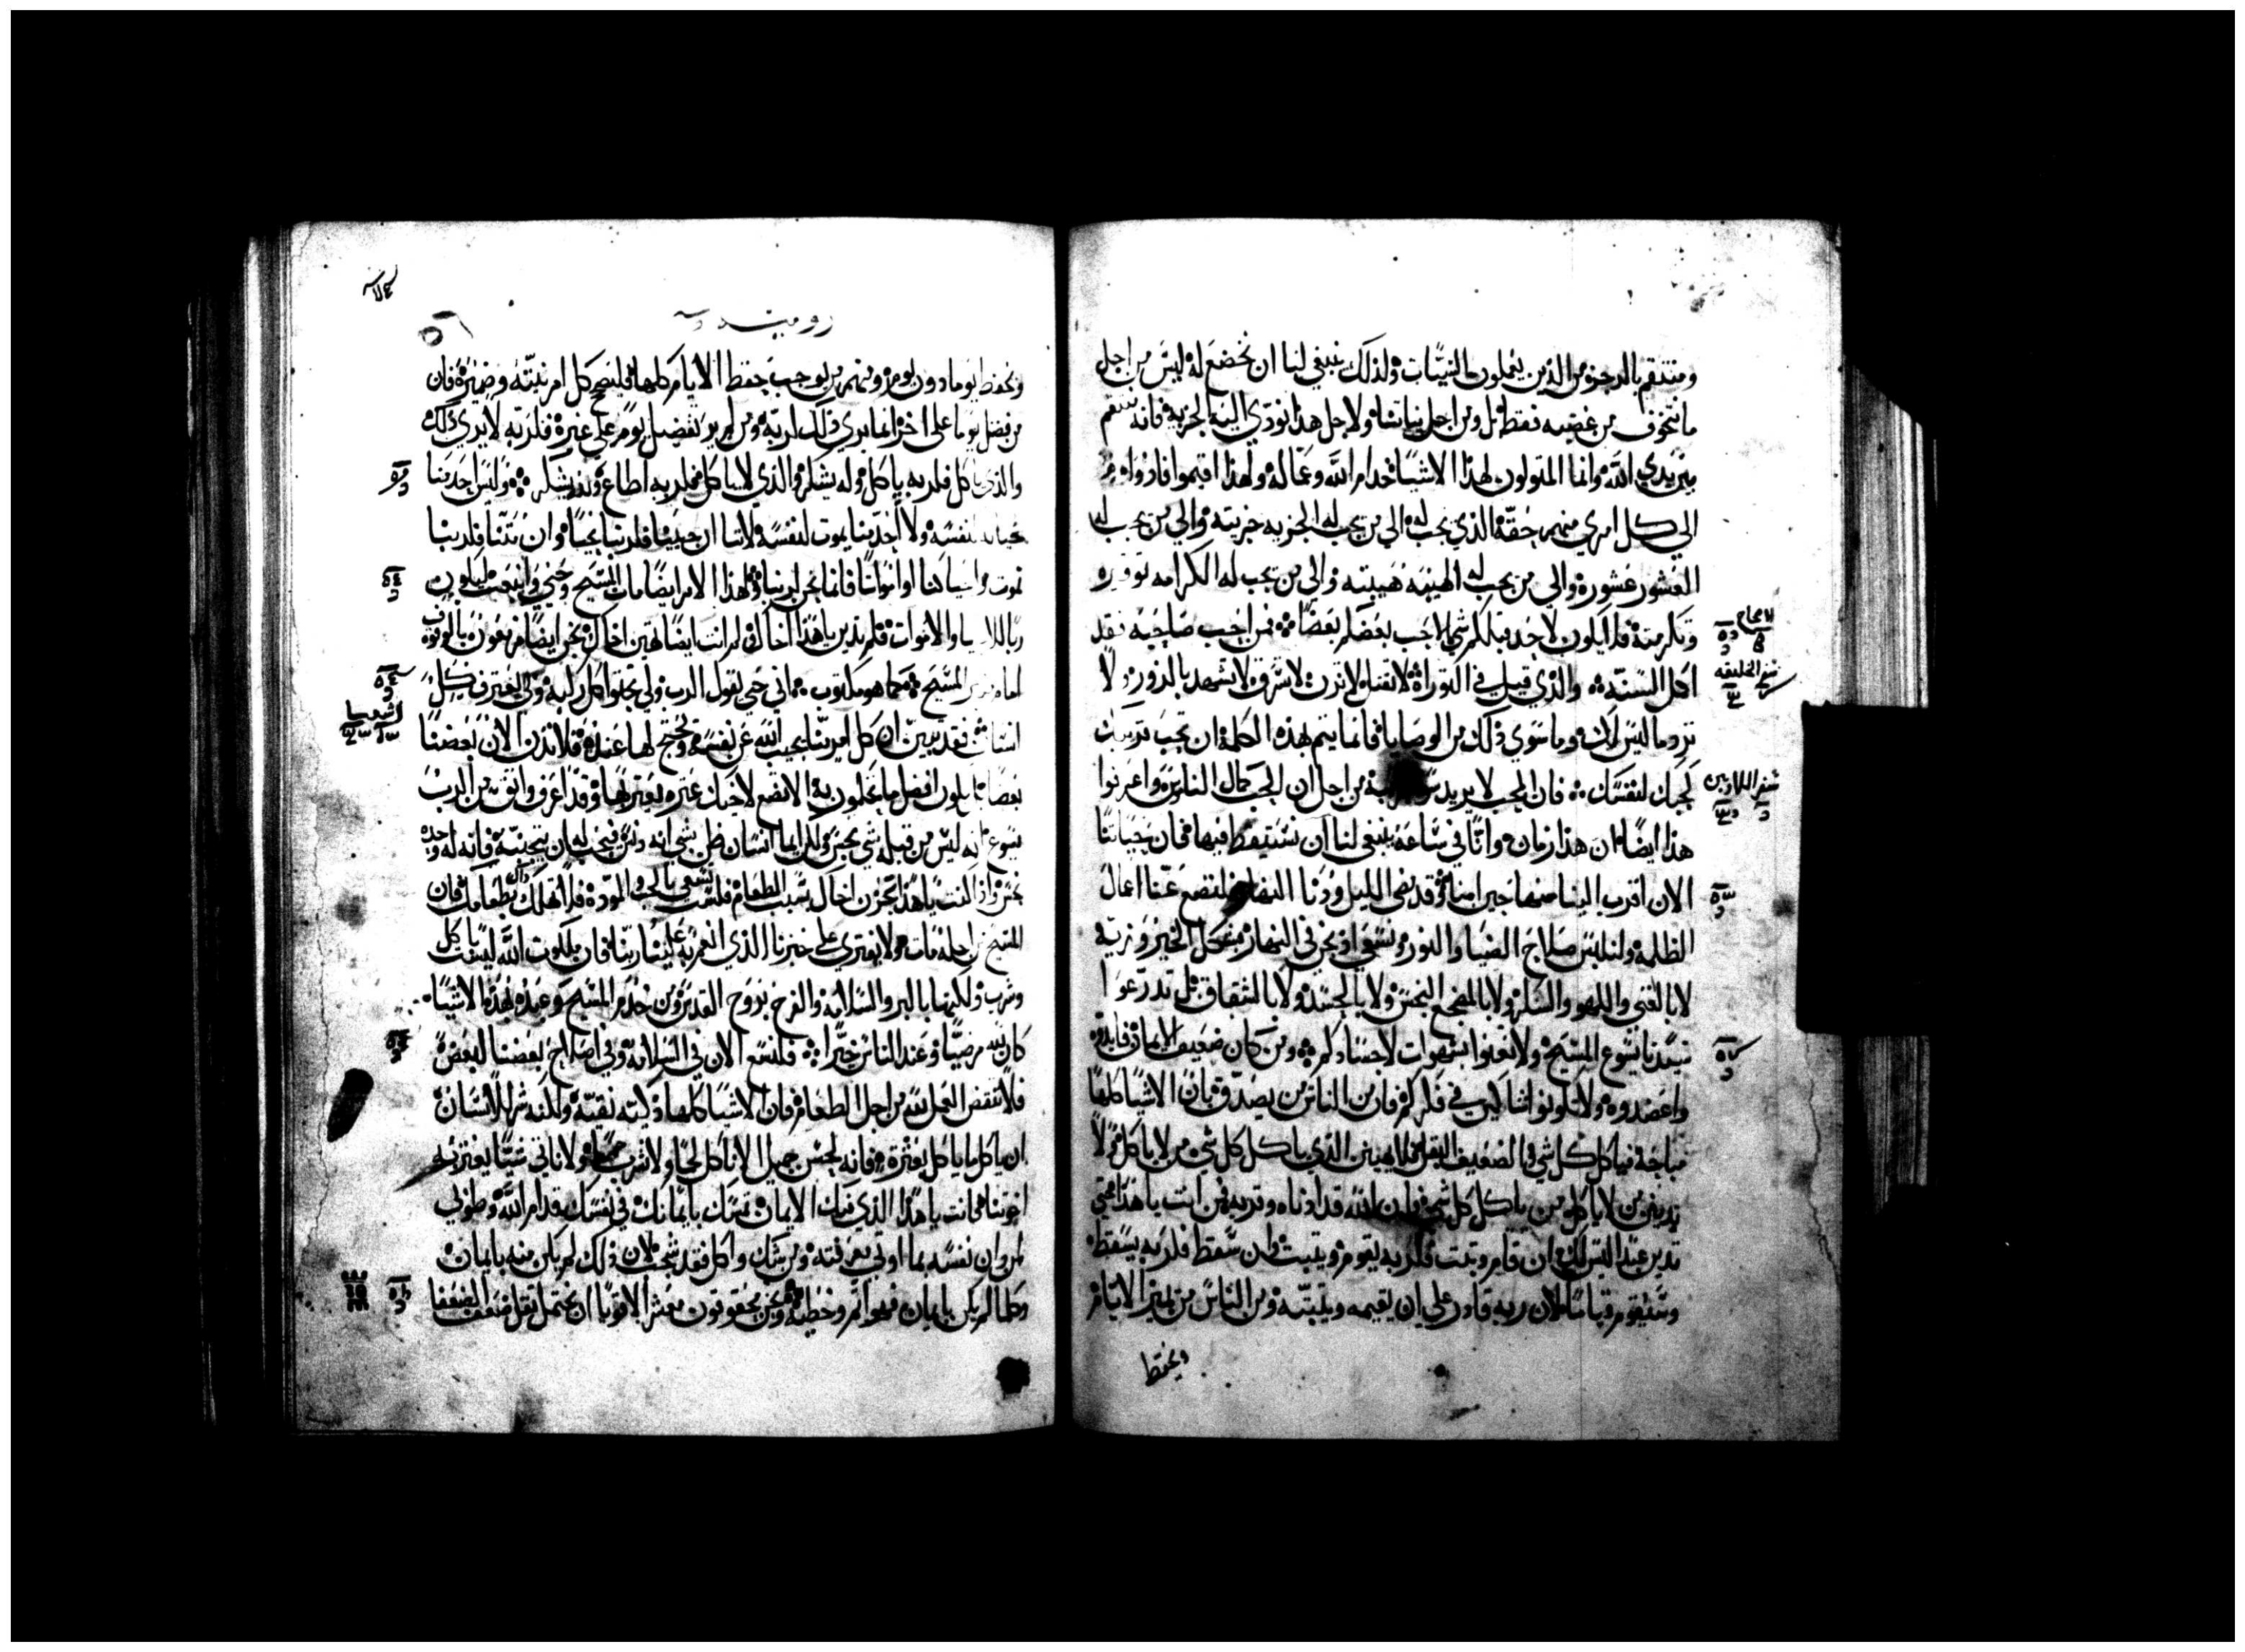 ومنتقم بالرجز من الذين يعملون السيّات ولذلك ينبغي لنا ان نخضع له ليس من اجل
ما نتخوف من غضبه فقط بل ومن اجل نياتنا ولاجل هذا نودّي اليه الجزية فانه
بين يدي الله وانما المتولون لهذا الاشيا خدام الله وعماله ولهذا اقيموا فادوا
الي كل امري منهم حقه الذي يجب له الي من يجب له الجزيه جزيته والي من يجب له
العشور عشوره والي من يجب له الهيبه هيبته والي من يجب له الكرامه توقيره
وتكرمته فلا يكون لاحد قبلكم شي الا حب بعضكم بعضا من احب صاحبه فقد
اكمل السنّه والذي قيل في التوراة لا تقتل لا تزن لا تسرق لا تشهد بالزور ولا
ترد ما ليس لك وما سوي ذلك من الوصايا فانما يتم بهذه الكلمة ان تحب قريبك
كحبك لنفسك فان المحب لا يريد من اجل ان الحب كمال الناموس واعرفوا
هذا ايضا ان هذا زمان وانا في ساعة ينبغي لنا ان نستيقظ فيها فان حياتنا
الان اقرب الينا منها حين امنا وقد مضي الليل ودنا النهار فلنضع عنا اعمال
الظلمه ولنلبس سلاح الضيا والنور ونسعي اذ نحن في النهار بشكل الخير وزيه
لا بالغني واللهو والسكر ولا بالمضجع النجس ولا بالحسد ولا بالشقاق بل تدرّعوا
سيدنا يسوع المسيح ولا تعنوا بشهوات لاجسادكم ومن كان ضعيف الايمان فايدوه
واعضدوه ولا تكونوا شاكين في فكركم فان من الناس من يصدق بان الاشيا كلها
مباحة فياكل كل شي والضعيف البقل فلا يهينن الذي ياكل كل شي من لا ياكل ولا
يدينن من لا ياكل من ياكل كل شي فان الله قد ادناه وقربه فمن انت يا هذا حتي
تدين عبدا ليس لك ان قام وثبت فلربه يقوم ويثبت وان سقط فلربه يسقط
وسيقوم قياما لان ربه قادر علي ان يقيمه ويثبته ومن الناس من يميز الايام
ويحفظ
سفر الخليقه
سفر اللاويين
روميه
ويحفظ يوما دون يوم ومنهم من يوجب حفظ الايام كلها فليصح كل امر نيته وضميره فان
من فضل يوما على اخر انما يري ذلك لربه ومن لم ير تفضيل يوم علي غيره فلربه لا يري ذلك
والذي ياكل فلربه ياكل وله يشكر والذي لا ياكل فلربه اطاع وله يشكر وليس احد منا
يحيا لنفسه ولا احد منا يموت لنفسه لانا ان حيينا فلربنا نحيا وان متنا فلربنا
نموت واحيا كنا او امواتا فانما نحن لربنا ولهذا الامر ايضا مات المسيح وحيي وانبعث ليكون
ربا للاحيا والاموات فلم تدين يا هذا اخاك او لم انت ايضا تهين اخاك نحن ايضا مزمعون بالوقوف
امام منبر المسيح كما هو مكتوب اني حي يقول الرب ولي تجثوا كل ركبه ولي يعترف كل
لسان فقد تبين ان كل امر منا يجيب الله عن نفسه ويحتج لها عنده فلا ندين الان بعضنا
بعضا يكون افضل ما تحكمون به الا تضع لاخيك عثره يعثر بها وقد اعرف واثق من الرب
يسوع انه ليس من قبله شي نجس ولكن ايما انسان ظن بشي انه دنس فيجب له ان يتجنبه فانه له وحده
نجس واذا كنت يا هذا تحزن اخاك بسبب الطعام فلست تسعي بالحق والمودة فلا تهلك بطعامك ذاك فان
المسيح من اجله مات ولا يفتري علي خيرنا الذي انعم به علينا ربنا فان ملكوت الله ليست باكل
وشرب ولكنها بالبر والسلامه والفرح بروح القدس ومن خدم المسيح وعبده بهذه الاشيا
كان لله مرضيا وعند الناس خيّرا فلنتبع الان في السلامه وفي اصلاح بعضنا لبعض
فلا ننقض العمل لله من اجل الطعام فان الاشيا كلها ذكيه نقيه ولكنه شر للانسان
ان ياكل ما ياكل بعثرة فانه لحسن جميل الا ناكل لحما ولا نشرب خمرا ولا ناتي شيا يعثر به
اخوتنا فانت يا هذا الذي فيك الايمان تمسك بايمانك في نفسك قدام الله وطوبي
لمن دان نفسه بما اوتي معرفته ومن شك واكل فقد شجب لان ذلك لم يكن منه بايمان
وكلما لم يكن بايمان فهو اثم وخطيه ونحن محقوقون معشر الاقويا ان نحتمل ثقل ضعف الضعفا
اشعيا